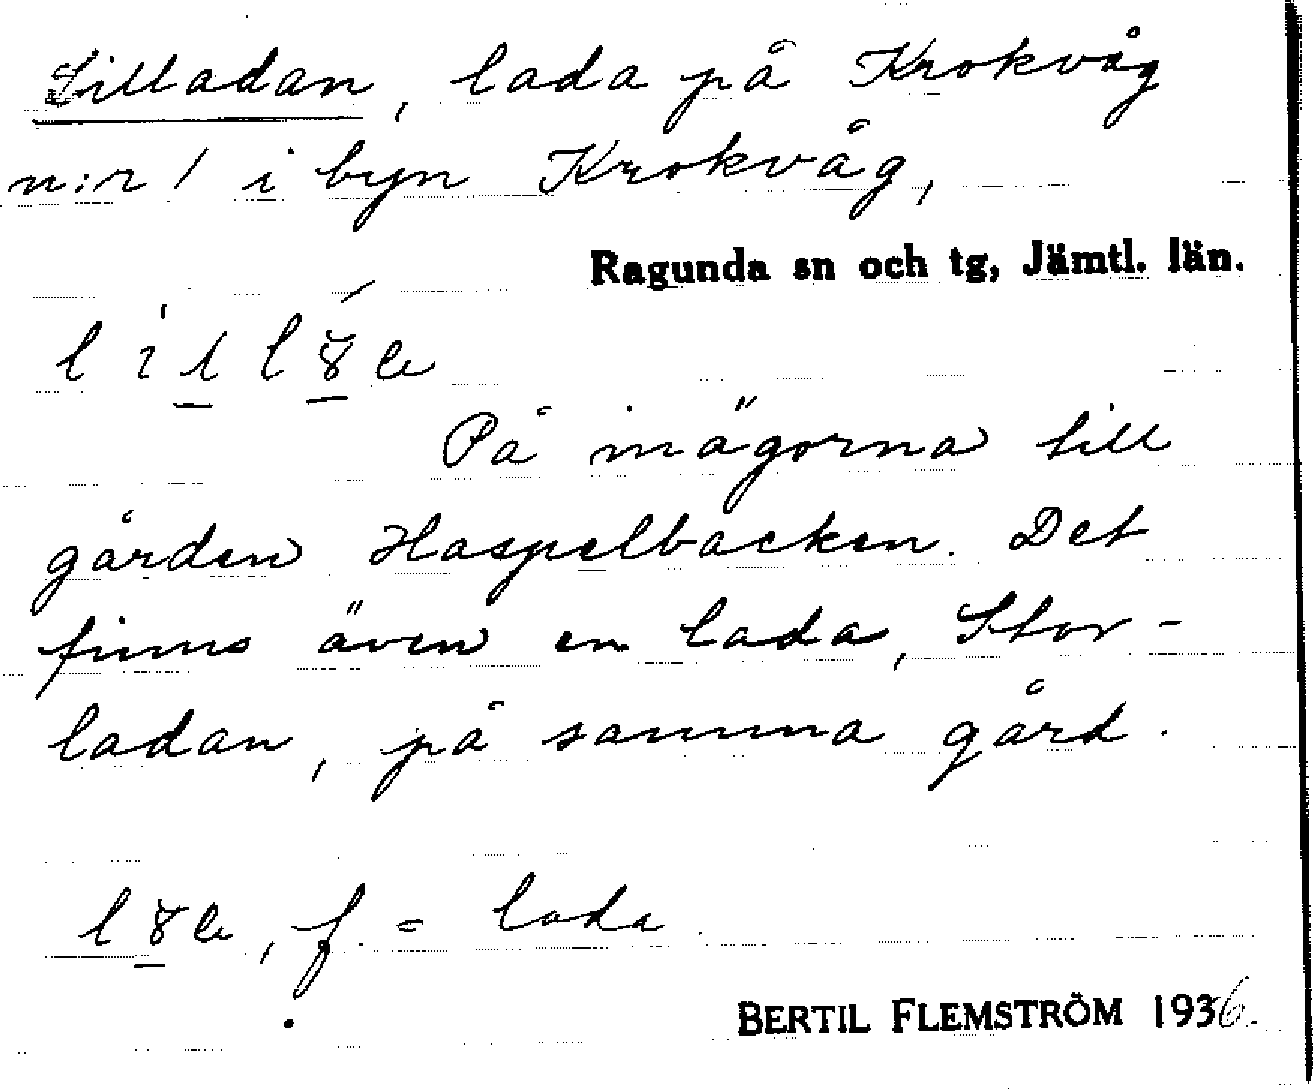 Lilladan, lada på Krokvåg
n:r 1 i byn Krokvåg,
Ragunda sn och tg, Jämtl. län.
På inägorna till
gården Haspelbacken. Det
finns även en lada, Stor-
ladan, på samma gård.
f. = lada.
BERTIL FLEMSTRÖM 1936.